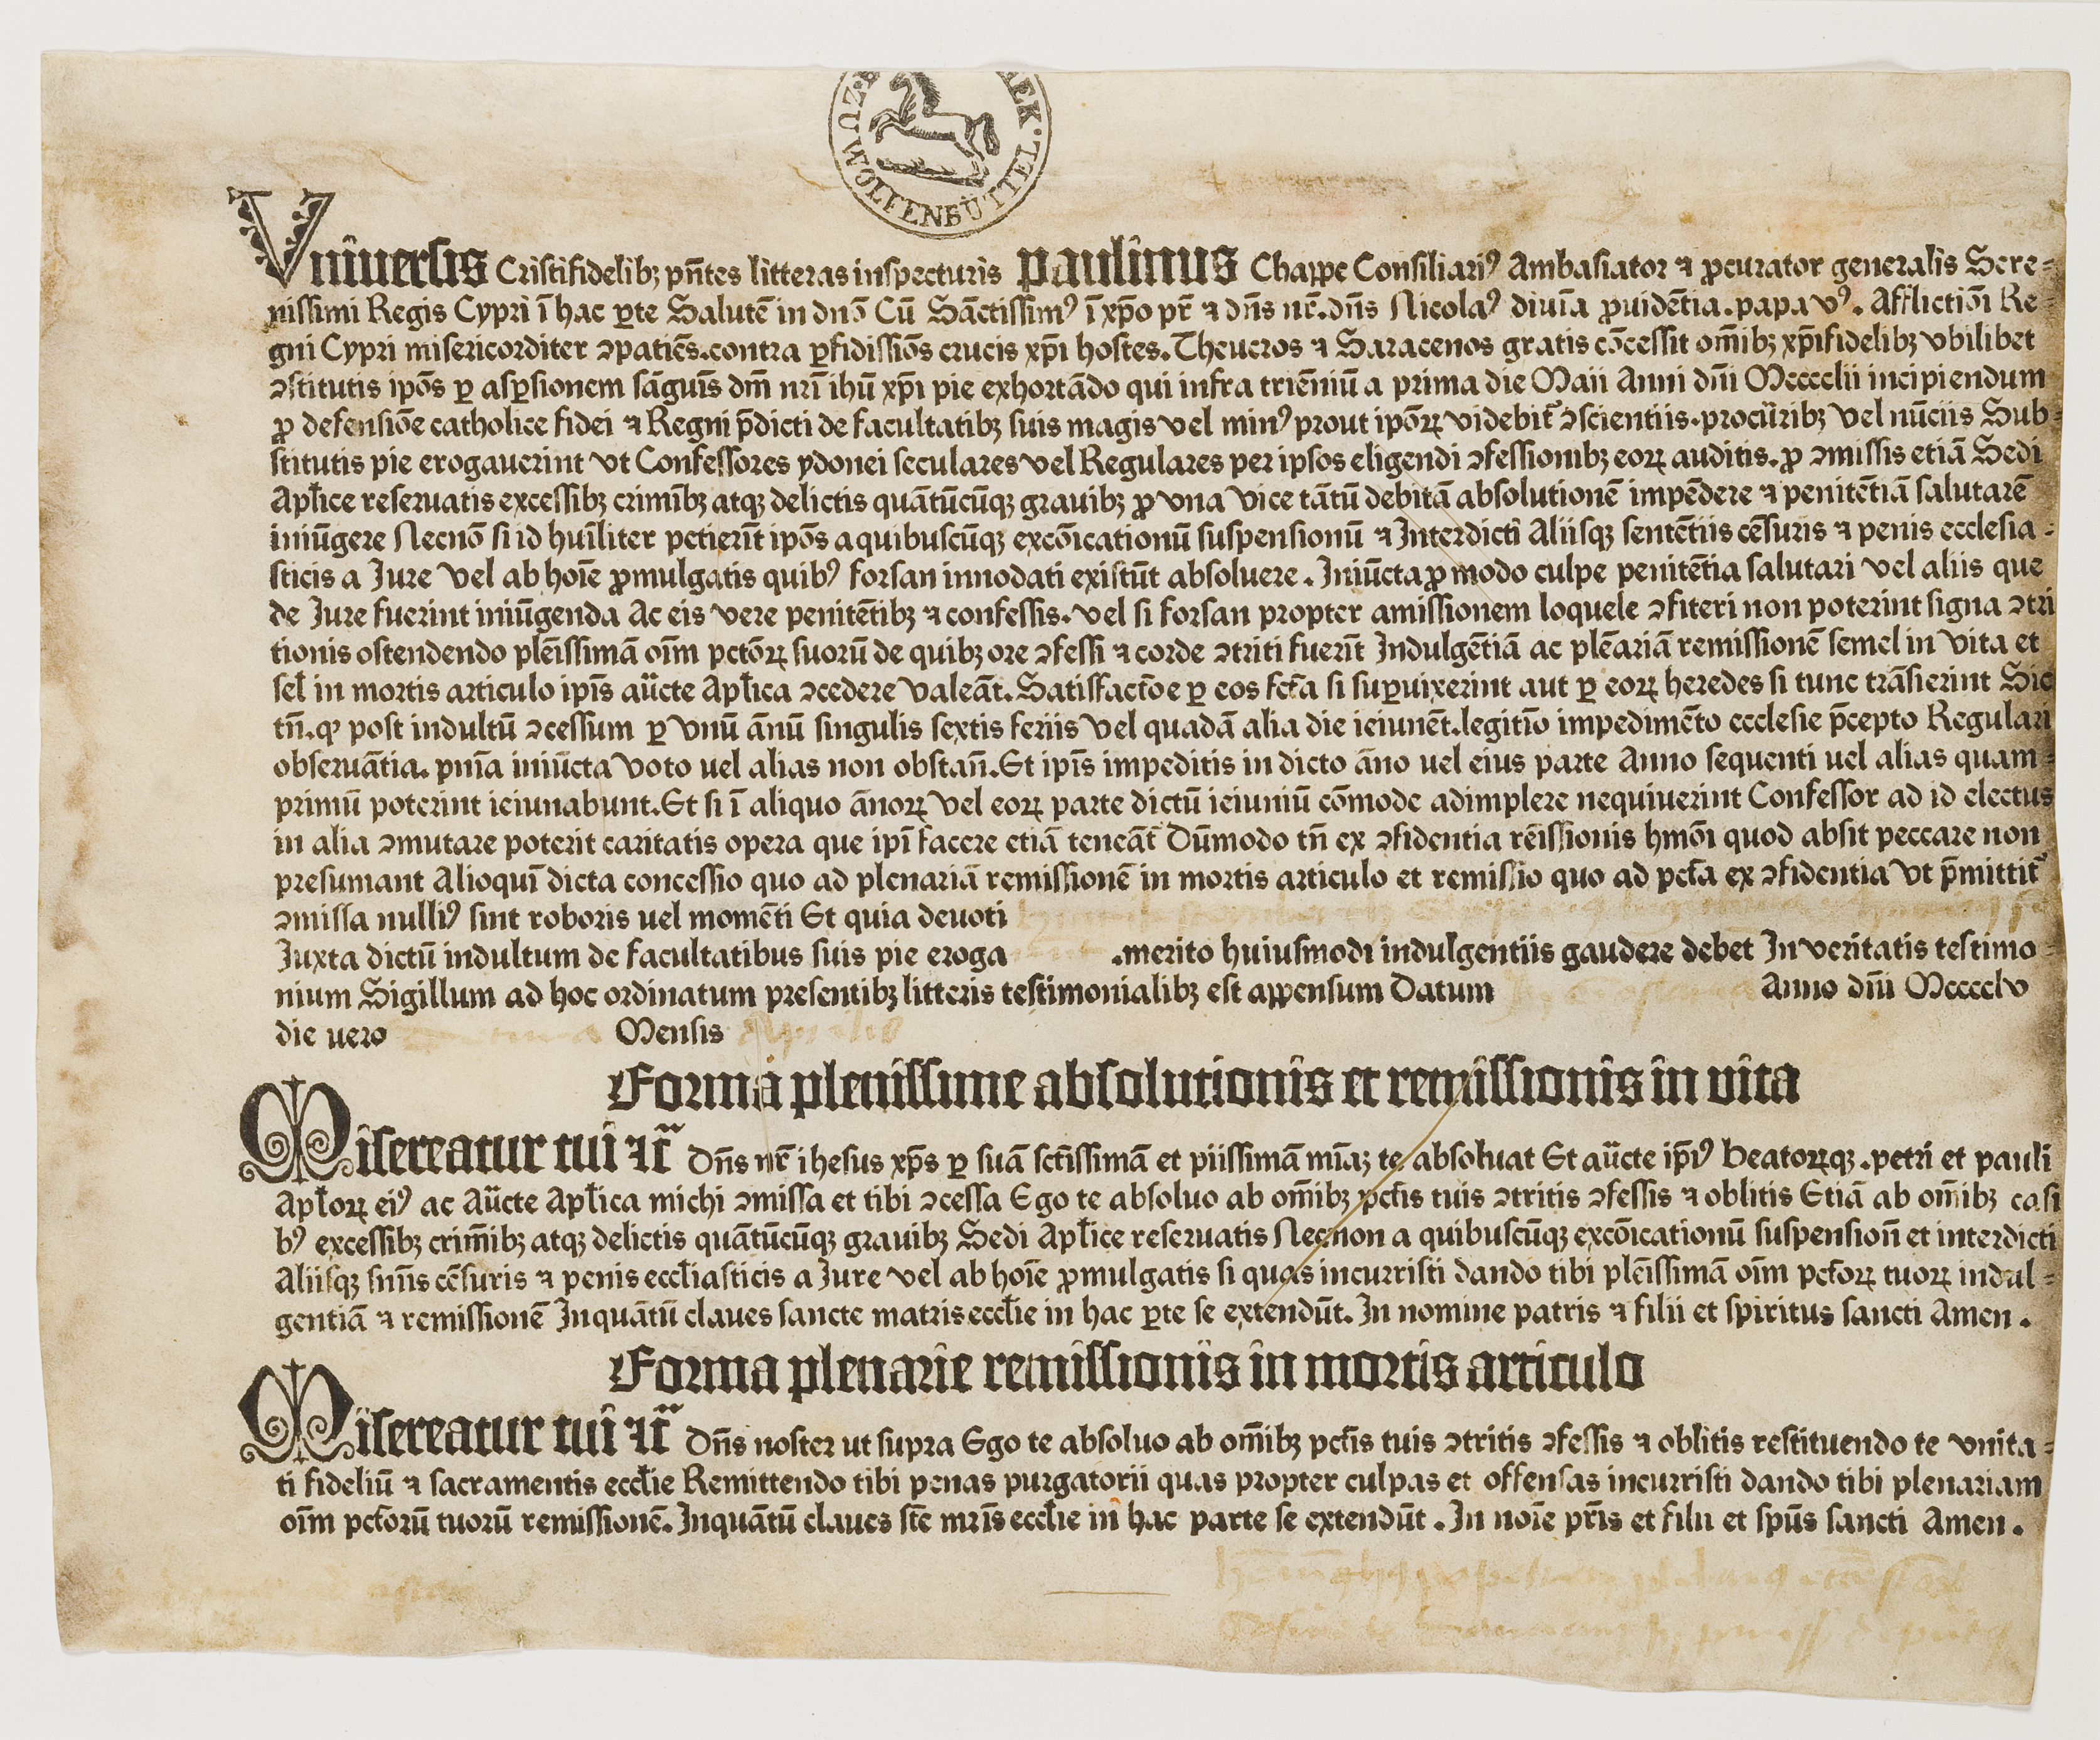 Z.U.WOLFENBÜTTEL.
Vniuersis Cristifidelibꝫ pn̄tes litteras inspecturis paulinus Chappe Consiliariꝰ Ambasiator ⁊ ꝓcurator generalis Sere-
nissimi Regis Cypri ī hac ꝑte Salutē in dnō Cū Sāctissimꝰ ī xp̄o pr̄ ⁊ dn̄s nr̄.dn̄s Nicolaꝰ diuīa ꝓuidētia.papa vꝰ. Afflictiōi Re-
gni Cypri misericorditer ꝯpatiēs.contra ꝑfidissiōs crucis xp̄i hostes.Theucros ⁊ Saracenos gratis cōcessit om̄ibꝫ xp̄ifidelibꝫ vbilibet
ꝯstitutis ipōs ꝑ aspꝑsionem sāguīs dn̄i nr̄i ihū xp̄i pie exhortādo qui infra triēniū a prima die Maii Anni dn̄i Mcccclii incipiendum
ꝓ defensiōe catholice fidei ⁊ Regni p̄dicti de facultatibꝫ suis magis vel minꝰ prout ipōꝝ videbit᷑ ꝯscientiis.procūribꝫ vel nūciis Sub-
stitutis pie erogauerint vt Confessores ydonei seculares vel Regulares per ipsos eligendi ꝯfessionibꝫ eoꝝ auditis.ꝓ ꝯmissis etiā Sedi
Apl̄ice reseruatis excessibꝫ crimībꝫ atqꝫ delictis quātūcūqꝫ grauibꝫ ꝓ vna vice tātū debitā absolutionē impēdere ⁊ penitētiā salutarē
iniūgere Necnō si id hūiliter petierīt ipōs a quibuscūqꝫ excōicationū suspensionū ⁊ Interdicti Aliisqꝫ sentētiis cēsuris ⁊ penis ecclesia-
sticis a Jure vel ab hoīe ꝓmulgatis quibꝰ forsan innodati existūt absoluere. Iniūcta ꝓ modo culpe penitētia salutari vel aliis que
de Jure fuerint iniūgenda Ac eis vere penitētibꝫ ⁊ confessis. vel si forsan propter amissionem loquele ꝯfiteri non poterint signa ꝯtri
tionis ostendendo plēissimā oīm pctōꝝ suorū de quibꝫ ore ꝯfessi ⁊ corde ꝯtriti fuerīt Indulgētiā ac plēariā remissionē semel in vita et
sel̄ in mortis articulo ipīs aūcte Apl̄ica ꝯcedere valeāt. Satisfactōe ꝑ eos fc̄ta si suꝑuixerint aut ꝑ eoꝝ heredes si tunc trāsierint Sic
tn̄.qꝙ post indultū ꝯcessum ꝑ vnū ānū singulis sextis feriis vel quadā alia die ieiunēt.legitīo impedimēto ecclesie p̄cepto Regulari
obseruātia. pnīa iniūcta voto uel alias non obstan̄. Et ipīs impeditis in dicto āno uel eius parte Anno sequenti uel alias quam-
primū poterint ieiunabunt. Et si ī aliquo ānoꝝ vel eoꝝ parte dictū ieiuniū cōmode adimplere nequiuerint Confessor ad id electus
in alia ꝯmutare poterit caritatis opera que ipī facere etiā teneāt᷑ Dūmodo tn̄ ex ꝯfidentia rēissionis hmōi quod absit peccare non
presumant Alioquī dicta concessio quo ad plenariā remissionē in mortis articulo et remissio quo ad pctā ex ꝯfidentia vt p̄mittit᷑
ꝯmissa nulliꝰ sint roboris uel momēti Et quia deuoti
Juxta dictū indultum de facultatibus suis pie eroga .merito huiusmodi indulgentiis gaudere debet In veritatis testimo-
nium Sigillum ad hoc ordinatum presentibꝫ litteris testimonialibꝫ est appensum Datum Anno dn̄i Mcccclv
die uero Mensis Aprilis
Forma plenissime absolutionis et remissionis in vita
Misereatur tui ⁊c̄ Dn̄s nr̄ ihesus xp̄s ꝑ suā sctīssimā et piissimā mīaꝫ te absoluat Et aūcte ip̄iꝰ beatoꝝqꝫ .petri et pauli
Apl̄oꝝ eiꝰ ac aūcte Apl̄ica michi ꝯmissa et tibi ꝯcessa Ego te absoluo ab om̄ibꝫ pctīs tuis ꝯtritis ꝯfessis ⁊ oblitis Etiā ab om̄ibꝫ casi
bꝰ excessibꝫ crim̄ibꝫ atqꝫ delictis quātūcūqꝫ grauibꝫ Sedi Apl̄ice reseruatis Necnon a quibuscūqꝫ excōicationū suspension̄ et interdicti
Aliisqꝫ snīis cēsuris ⁊ penis eccl̄iasticis a Jure vel ab hoīe ꝓmulgatis si quas incurristi dando tibi plēissimā oīm pctōꝝ tuoꝝ indul-
gentiā ⁊ remissionē Inquātū claues sancte matris eccl̄ie in hac ꝑte se extendūt. In nomine patris ⁊ filii et spiritus sancti Amen.
Forma plenarie remissionis in mortis articulo
Misereatur tui ⁊c̄ Dn̄s noster ut supra Ego te absoluo ab om̄ibꝫ pctīs tuis ꝯtritis ꝯfessis ⁊ oblitis restituendo te vnita-
ti fideliū ⁊ sacramentis eccl̄ie Remittendo tibi penas purgatorii quas propter culpas et offensas incurristi dando tibi plenariam
oīm pctōrū tuorū remissionē. Inquātū claues stē mr̄is eccl̄ie in hac parte se extendūt. In noīe pr̄is et filii et spūs sancti Amen.